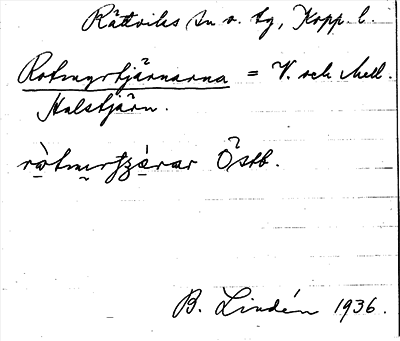 Rättviks sn o. tg, Kopp. l.
Rotmyrstjärnarna = V. och Mell.
Halstjärn.
Östb.
B. Lindén 1936.